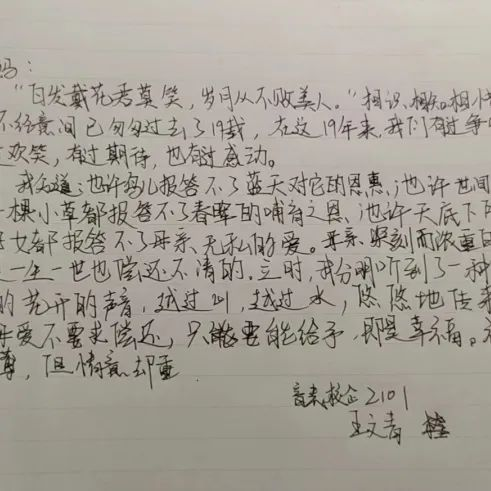 妈：
"白发戴花君莫笑，岁月从不败美人。"相识、相知、相
不经意间已匆匆过去了19载，在这19年来，我们有过争
过欢笑，有过期待，也有过感动。
我知道：也许鸟儿报答不了蓝天对它的恩惠，也许世间
一棵小草都报答不了春晖的哺育之恩，也许天底下
女都报答不了母亲、无私的爱。母亲、深刻而浓重的
一生一世也偿还不清的。立时，我分明听到了一种
的花开的声音，越过山，越过水，悠悠地传来
母爱不要求偿还，只能给予，即是幸福。
薄，但情意却重
校企2101
王文青